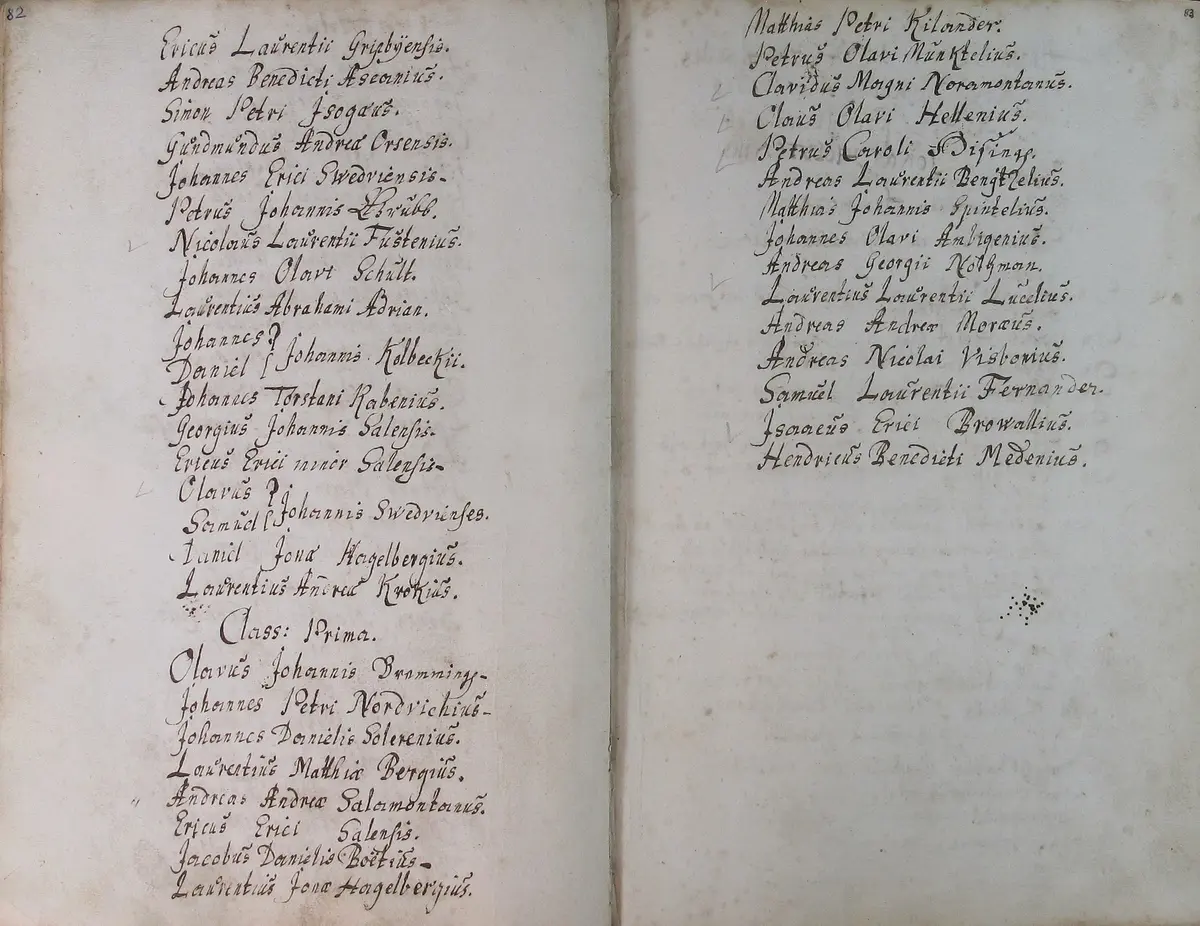 82
Ericus Laurentii Gripbyensis.
Andreas Benedicti Ascanius.
Simon Petri Isogæus.
Gundmundus Andreæ Orsensis.
Johannes Erici Swedviensis.
Petrus Johannis Grubb.
Nicolaus Laurentii Fustenius.
Johannes Olavi Schult.
Laurentius Abrahami Adrian.
Johannes
Daniel Johannis Kolbeckii.
Johannes Torstani Rabenius.
Georgius Johannis Salensis.
Ericus Erici minor Salensis
Olavus
Samuel Johannis Swedvienses.
Daniel Jonæ Hagelbergius.
Laurentius Andreæ Krokius.
Class: Prima.
Olavus Johannis
Johannes Petri Nordvichius
Johannes Danielis Solerenius.
Laurentius Matthiæ Bergius.
Andreas Andreæ Salamontanus.
Ericus Erici Salensis.
Jacobus Danielis Boëtius
Laurentius Jonæ Hagelbergius.
83
Matthias Petri Kilander.
Petrus Olavi Munktelius.
Clavidus Magni Noramontanus.
Claus Olavi Hellenius.
Petrus Caroli
Andreas Laurentii Bengtzelius.
Matthias Johannis Spintelius.
Johannes Olavi Ambigenius.
Andreas Georgii
Laurentius Laurentii Lucelius.
Andreas Andreæ Moræus.
Andreas Nicolai Visborius.
Samuel Laurentii Fernander.
Isaacus Erici Browallius.
Hendricus Benedicti Medenius.